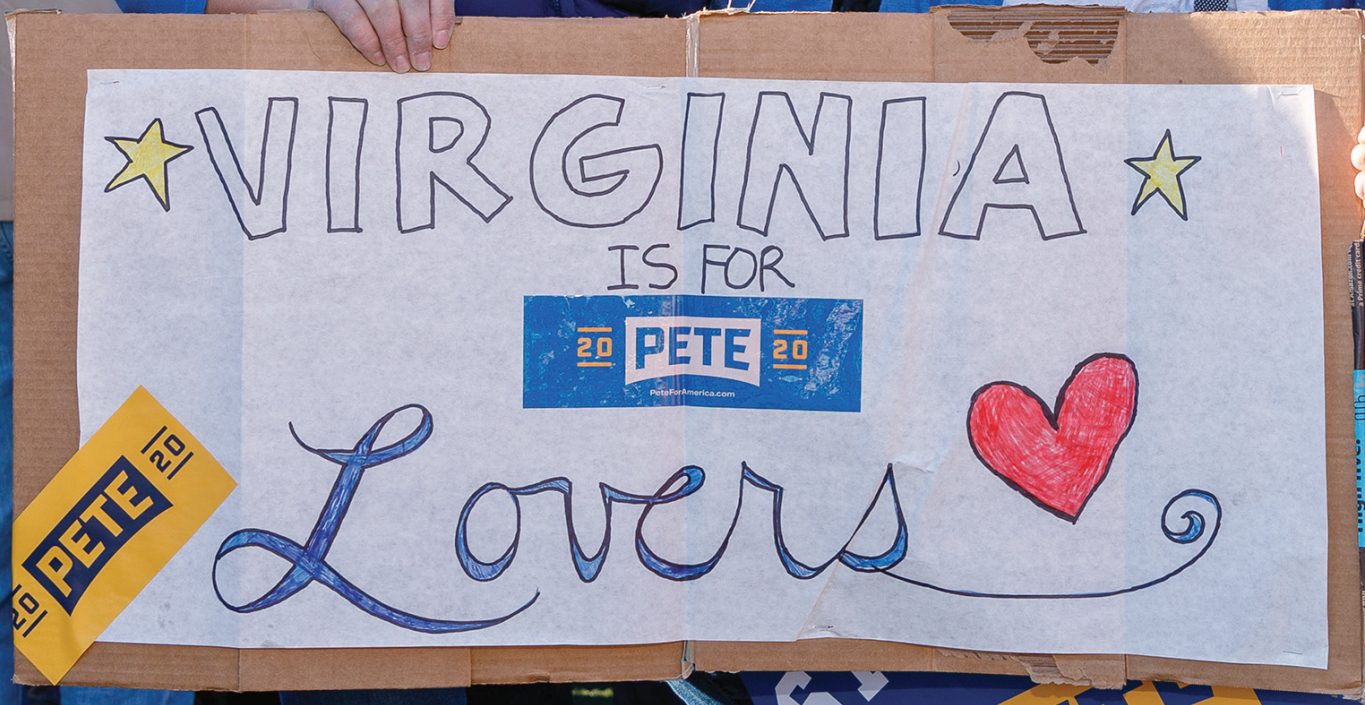 VIRGINIA
IS FOR
20 PETE 20
PeteForAmerica.com
Lovers
20 PETE 20